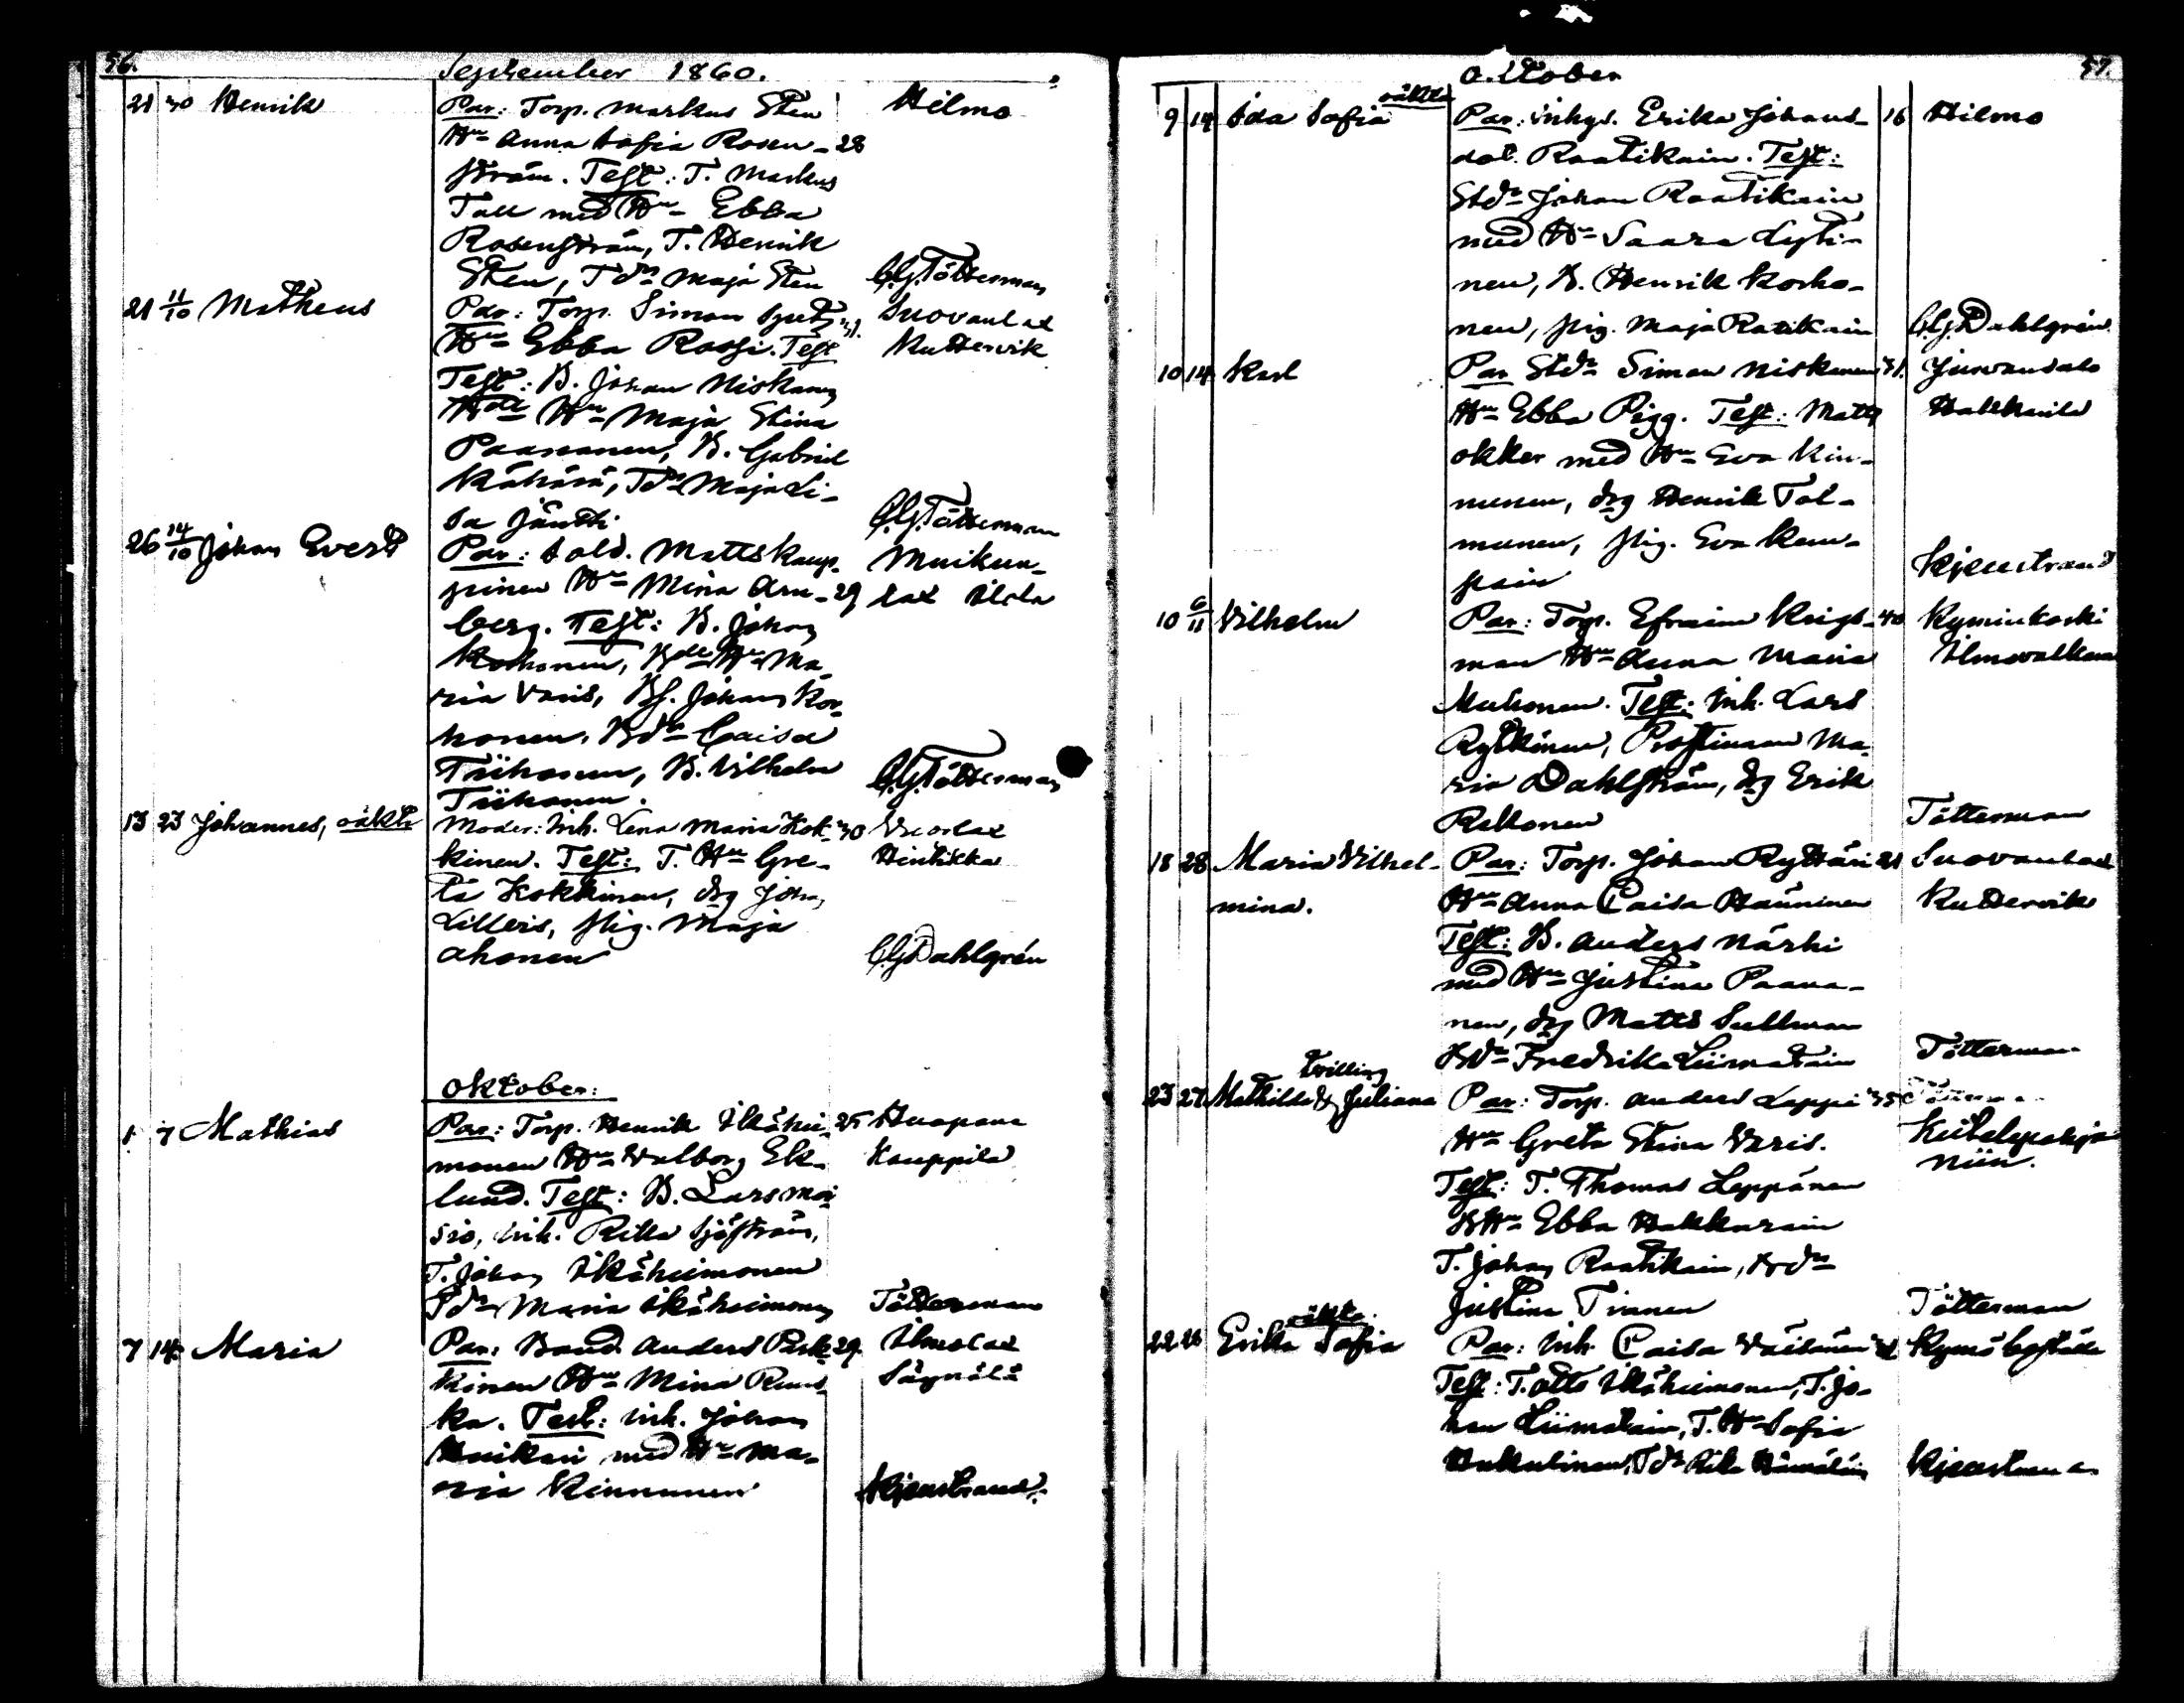 56.
September 1860.
21 30 Henrik
Par: Torp. Markus Sten
Hu Anna Sofia Rosen- 28
ström. Test: T. Markus
Tall med Hu Ebba
Rosenström, T. Henrik
Sten, Tdr Maja Sten
Hilmo
C.G. Tötterman
21 11/10 Matheus
Par: Torp. Simon
Hu Ebba Rossi. Test
Test: B. Johan Niskanen
Hu Maja Stina
Paananen, B. Gabriel
Kähärä, Tdr Maja Li-
sa Jäntti
Suovanlax
Kuttervik
C.G. Tötterman
26 14/10 Johan Evert
Par: Sold. Matts Kaup-
pinen Hu Mina Arn- 29
berg. Test: B. Johan
Korhonen, Hu Ma-
ria Varis, Bs. Johan Kor-
honen, Bdr Caisa
Tiihonen, B. Vilhelm
Tiihonen.
Muikun-
lax Ilola
C.G. Tötterman
13 23 Johannes, oäkta
Moder: Inh. Lena Maria Kok- 30
kinen. Test: T. Hu Gre-
ta Kokkinen, drg Johan
Lilleris, pig. Maja
Ahonen
Vuorlax
Hintikka
C.G. Dahlgrén
Oktober:
1 7 Mathias
Par: Torp. Henrik Ikähei- 25
monen Hu Valborg Ek-
lund. Test: B. Lars Moi
sio, Inh. Ritta Sjöström,
T. Johan Ikäheimonen
Tdr Maria Ikäheimonen
Haapana
Kauppila
Tötterman
7 14 Maria
Par: Bond. Anders Park- 29
kinen Hu Mina Ruus-
ka. Test: Inh. Johan
med Hu Ma-
ria Kinnunen
Ilmolax
Säynälä
Kjenstrand
57.
Oktober
9 14 Ida Sofia oäkta
Par: inhys. Erika Johans- 16
dot. Raatikain. Test:
Stdr Johan Raatikain
med Hu Saara Lyti-
nen, B. Henrik Korho-
nen, pig. Maja Ratikain
Hilmo
C.G. Dahlgrén
10 14 Karl
Par Stdr Simon Niskanen 31.
Hu Ebba Pigg. Test: Matts
Okker med Hu Eva Kin-
nunen, drg Henrik Tol-
munen, pig. Eva Kau-
pain
Juovansalo
Hakkarila
Kjenstrand
10 6/11 Vilhelm
Par: Torp. Efraim Krigs- 40
man Hu Anna Maria
Muhonen. Test: Inh. Lars
Rytkönen, Prostinnan Ma-
ria Dahlström, drg Erik
Rekonen
Kyminkoski
Ilmovalkama
Tötterman
18 28 Maria Vilhel-
mina.
Par: Torp. Johan Ryttäri 21
Hu Anna Caisa Hänninen
Test: B. Anders Närhi
med Hu Justina Paana-
nen, drg Matts Sellman
Bdr Fredrika Liimatain
Suovanlax
Kuttervik
Tötterman
Tvilling
23 27 Mathilda & Juliana
Par: Torp. Anders Leppä 35
Hu Greta Stina Varis.
Test: T. Thomas Leppänen
BHu Ebba Hakkarain
T. Johan Raatikain, Bdr
Justina Tinnen
niin.
Tötterman
22 28 Erika Sofia oäkta
Par: Inh. Caisa Väisänen
Test: T. Otto Ikäheimonen, T. Jo-
han Liimatain, T. Hu Sofia
Hukulinen, Tdr Rika Hämäläin
Kymö
Kjenstrand